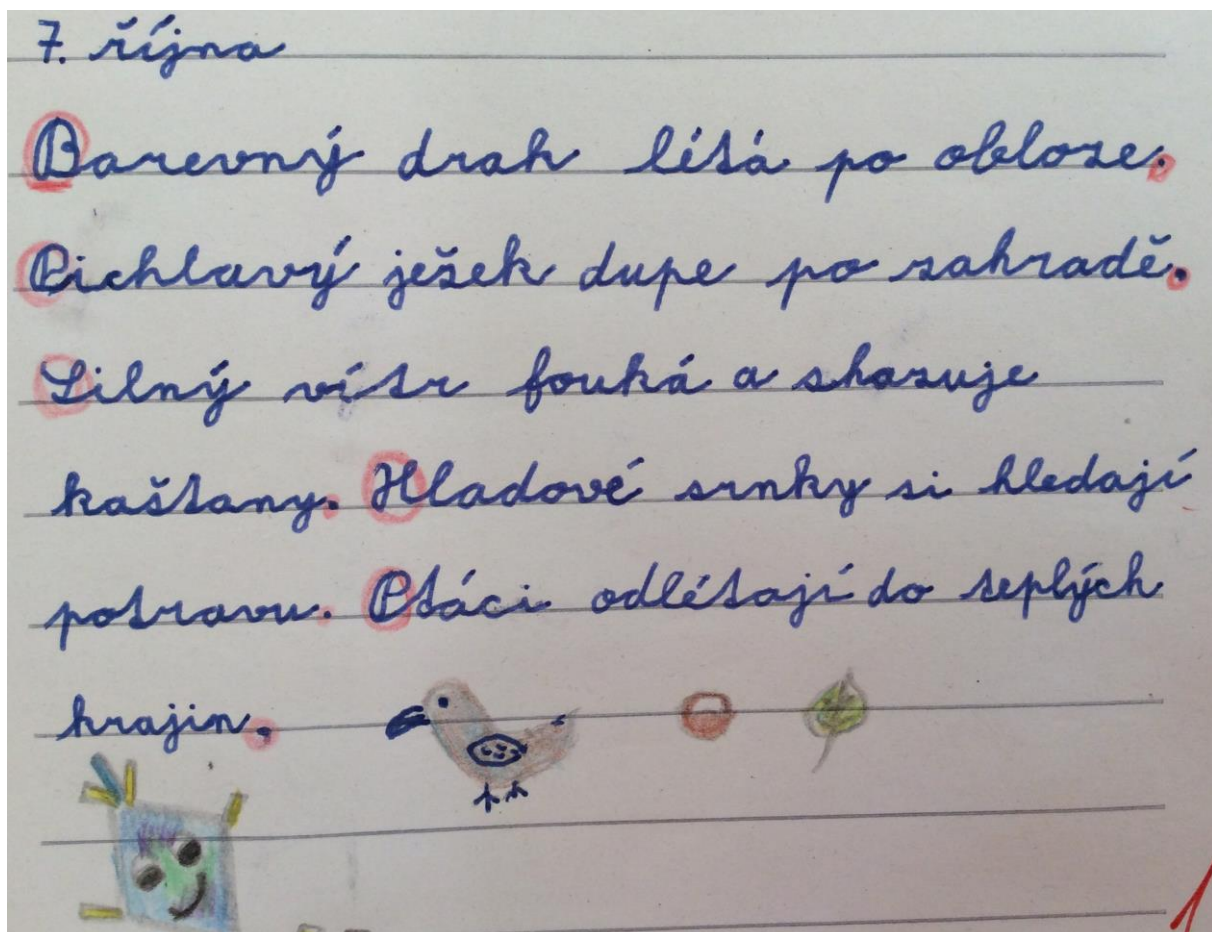 7. října
Barevný drak létá po obloze.
Pichlavý ježek dupe po zahradě.
Silný vítr fouká a shazuje
kaštany. Hladové srnky si hledají
potravu. Ptáci odlétají do teplých
krajin.
1